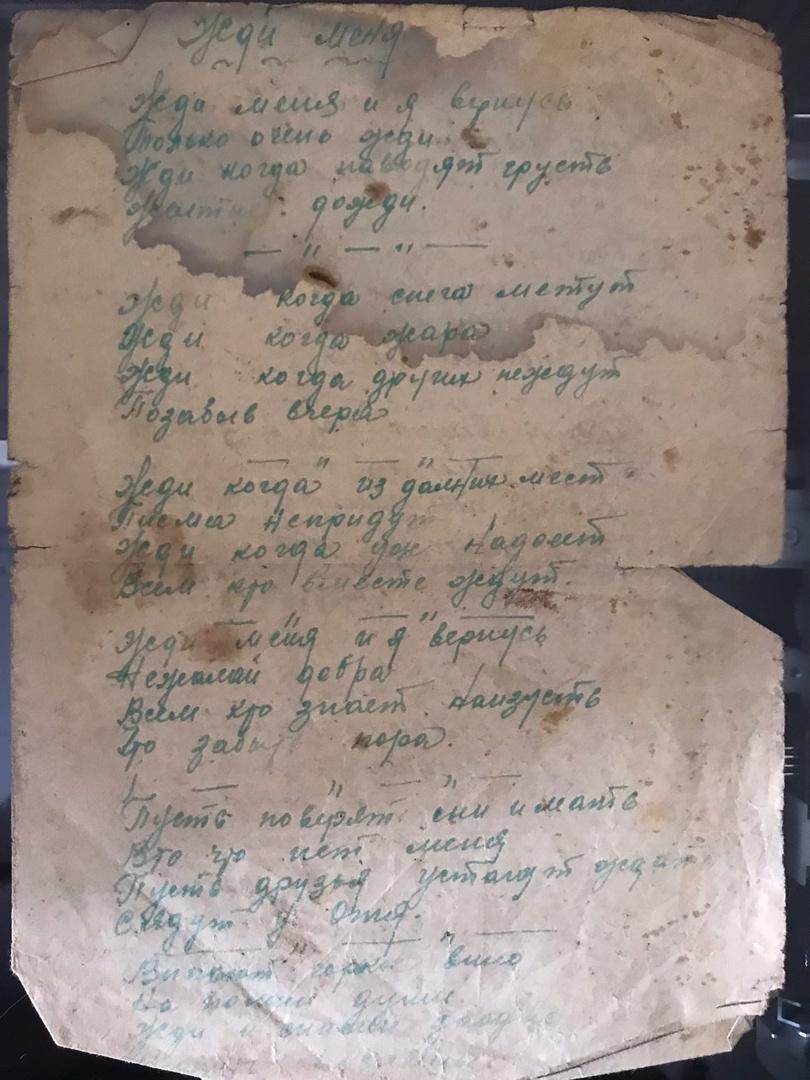 Жди меня
Жди меня и я вернусь
Только очень жди.
Жди когда наводят грусть
дожди.
— " — " —
Жди когда снега метут
Жди когда жара
Жди когда других неждут
Позабыв вчера
— " — " —
Жди когда из дальних мест
Писма непридут
Жди когда уж надоест
Всем кто вместе ждут.
— " — " —
Жди меня и я вернусь
Нежелай добра
Всем кто знает наизусть
Что забыть пора.
— " — " —
Пусть поверят сын и мать
Вто что нет меня
Пусть друзья устанут ждать
Сядут у Огня.
— " — " —
вино
На помин души
Жди и